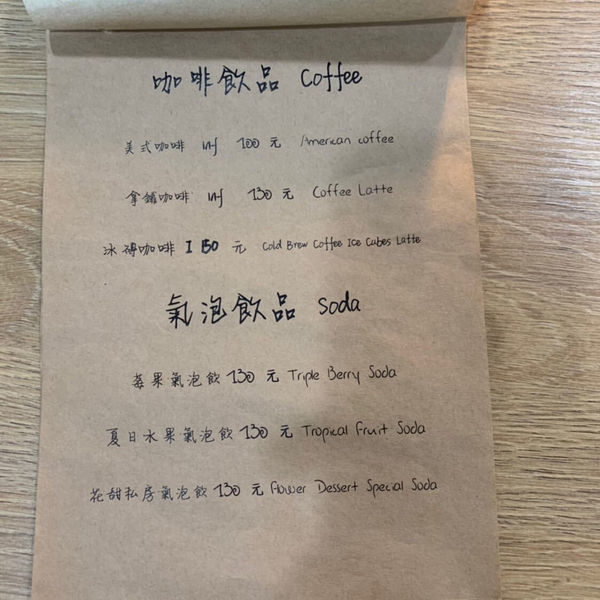 咖啡飲品 Coffee
美式咖啡 100 元 American coffee
拿鐵咖啡 130 元 Coffee Latte
冰磚咖啡 I 150 元 Cold Brew Coffee Ice Cubes Latte
氣泡飲品 Soda
莓果氣泡飲 130 元 Triple Berry Soda
夏日水果氣泡飲 130 元 Tropical Fruit Soda
花甜私房氣泡飲 130 元 Flower Dessert Special Soda